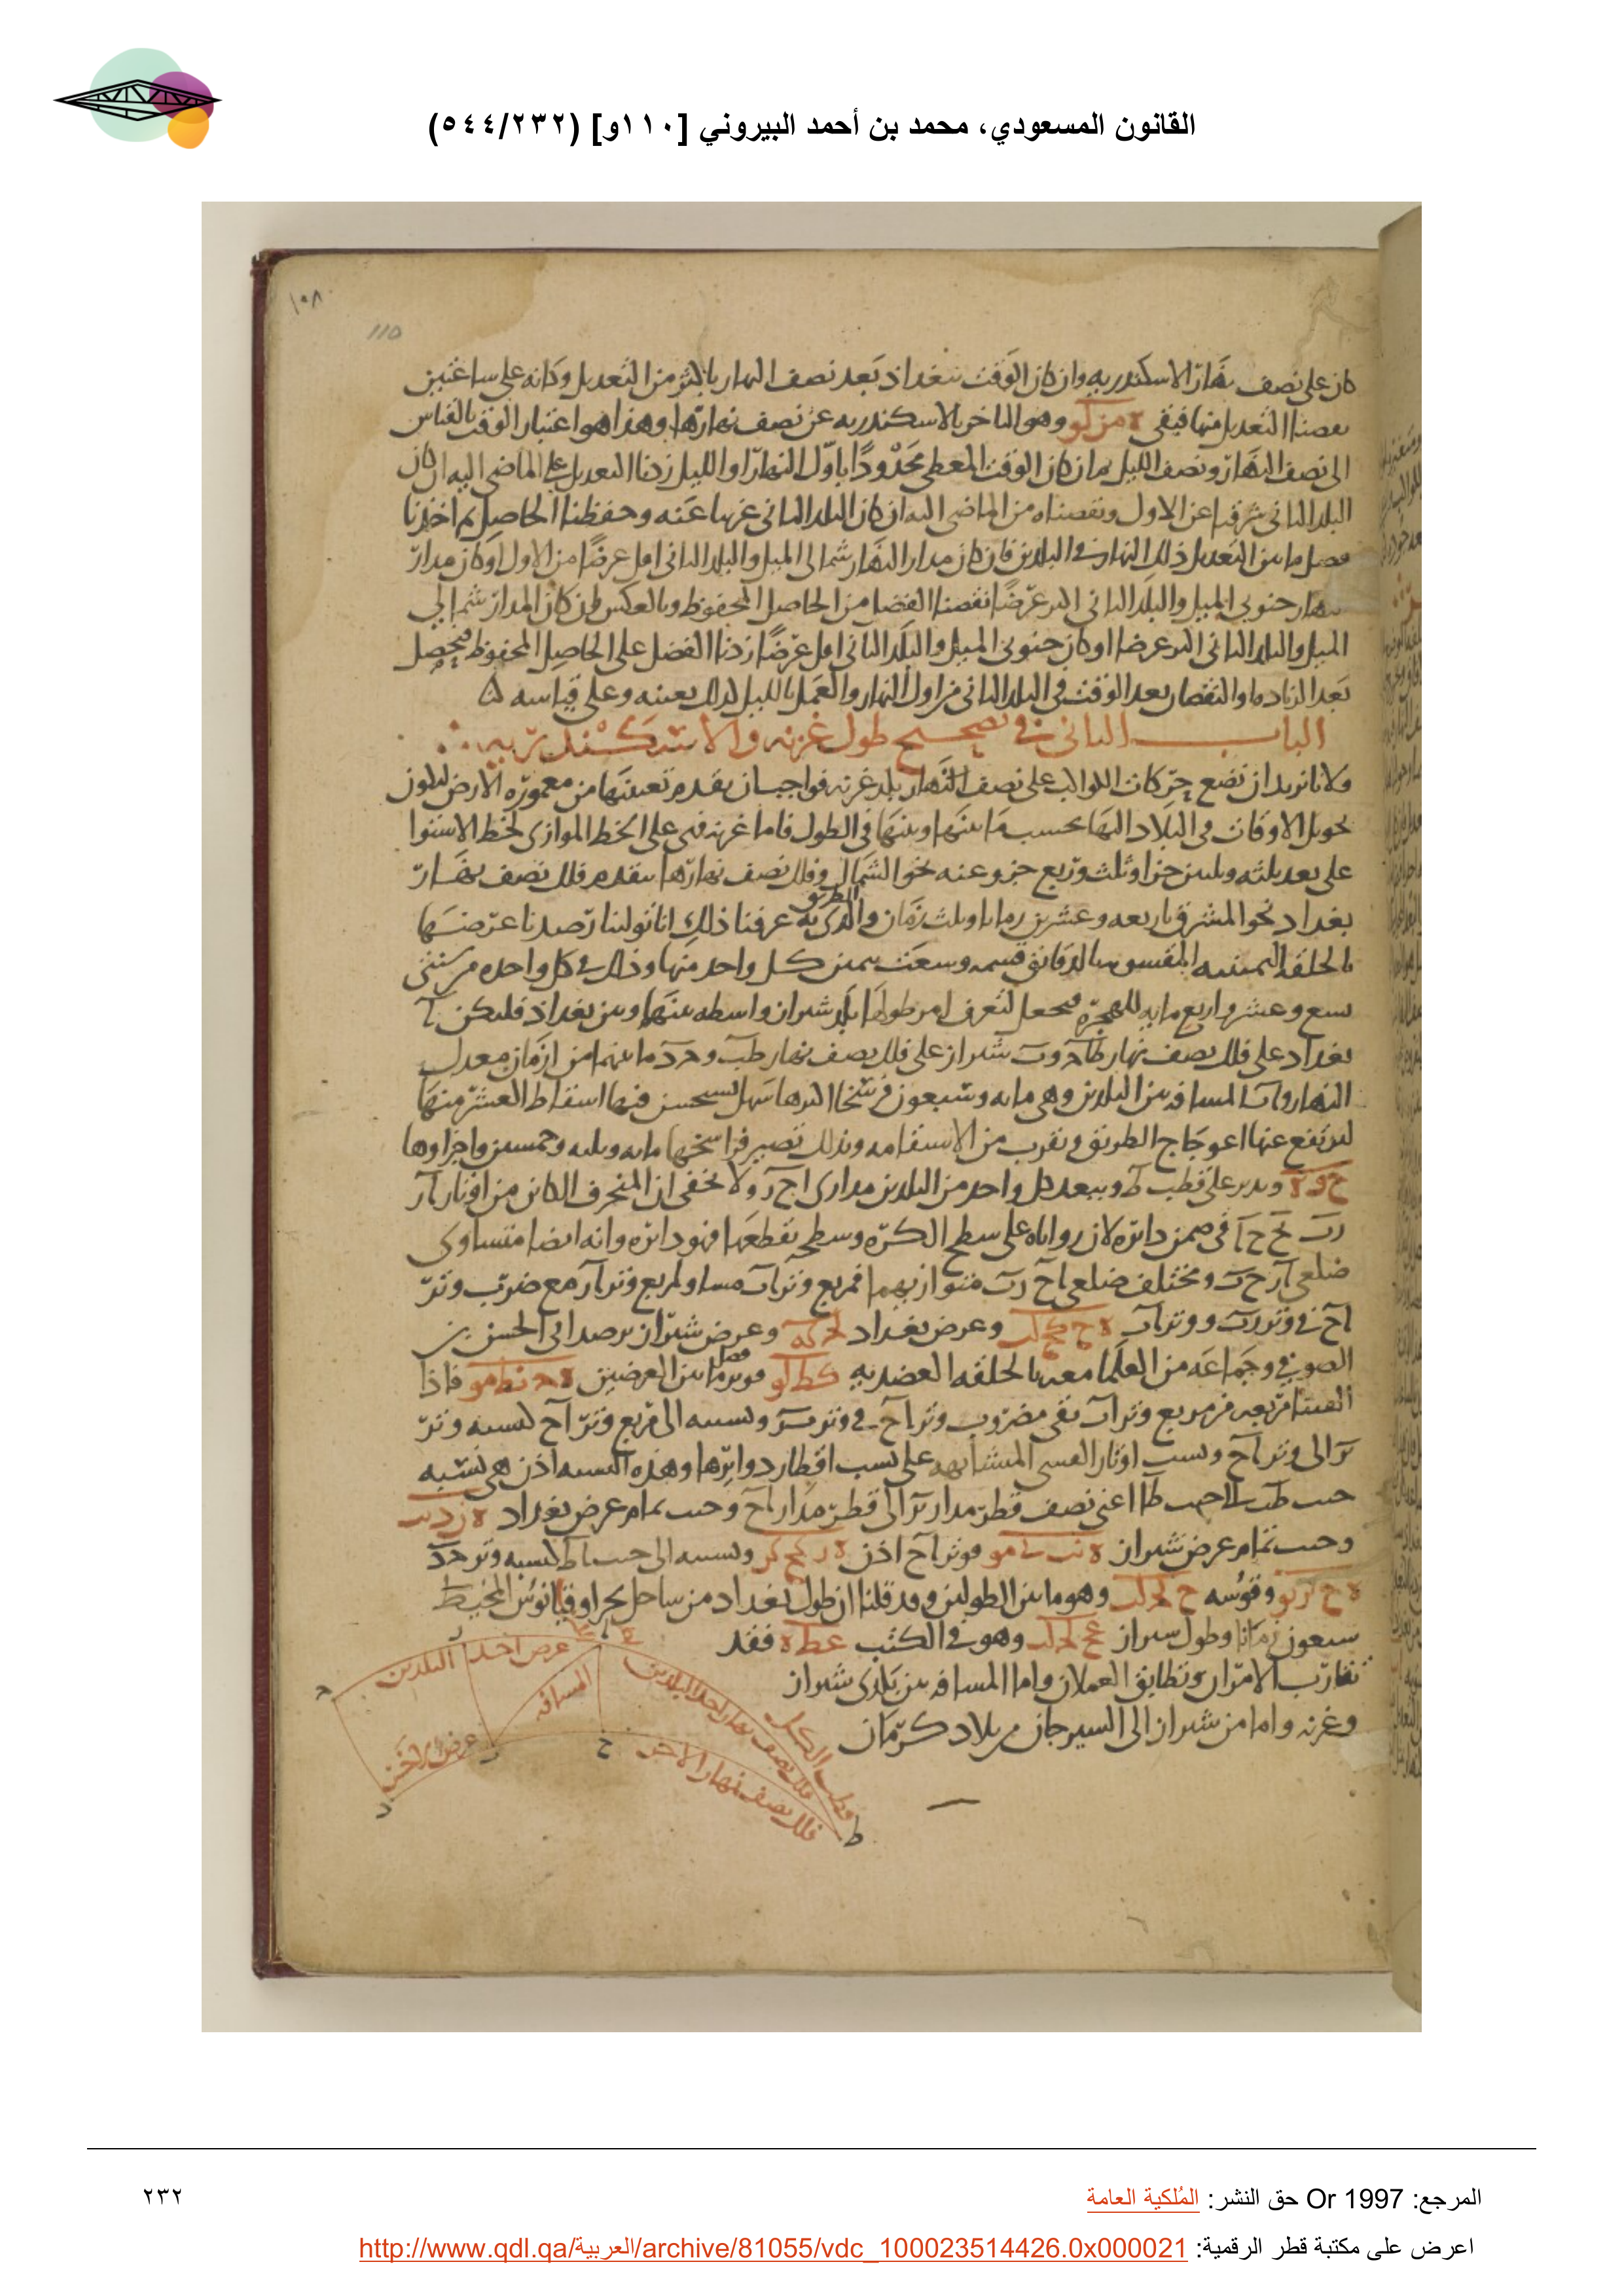 القانون المسعودي، محمد بن أحمد البيروني [١١٠و] (٥٤٤/٢٣٢)
١٠٨
110
كان على نصف نهار الاسكندريه وان كان الوقت ببغداد بعد نصف النهار باكثر من التعديل وكانه على ساعتين
نقصنا التعديل منها فيبقى ه مز كو وهو التاخر بالاسكندريه عن نصف نهارها وهذا هو اعتبار الوقت بالقياس
الى نصف النهار ونصف الليل فان كان الوقت المعطى محدودا باول النهار او الليل زدنا التعديل على الماضى اليه ان كان
البلد الثانى شرقيا عن الاول ونقصناه من الماضى اليه ان كان البلد الثانى غربيا عنه وحفظنا الحاصل ثم اخذنا
فصل ما بين التعديل ذلك النهار فى البلدين فان كان مدار النهار شمالى الميل والبلد الثانى اقل عرضا من الاول او كان مدار
النهار جنوبى الميل والبلد الثانى اكثر عرضا نقصنا الفضل من الحاصل المحفوظ وبالعكس ان كان المدار شمالى
الميل والبلد الثانى اكثر عرضا او كان جنوبى الميل والبلد الثانى اقل عرضا زدنا الفضل على الحاصل المحفوظ فيحصل
بعد الزياده او النقصان بعد الوقت فى البلد الثانى من اول النهار والعمل بالليل كذلك بعينه وعلى قياسه
الباب الثانى فى تصحيح طول غزنه والاسكندريه
ولانا نريد ان نضع حركات الكواكب على نصف النهار بلد غزنه فواجب ان يقدم تعيينها من معموره الارض ليكون
تحويل الاوقات فى البلاد اليها بحسب ما بينها وبينها فى الطول فاما غزنه فهى على الخط الموازى لخط الاستوا
على بعد ثلثه وثلثين جزا وثلث وربع جزو عنه نحو الشمال وفلك نصف نهارها يتقدم فلك نصف نهار
بغداد نحو المشرق باربعه وعشرين زمانا وثلث زمان والطريق الذى به عرفنا ذلك انا تولينا رصدنا عرضها
بالحلقه اليمينيه المقسومه بالدقائق قسمه وسعت بميز كل واحد منها وذلك فى كل واحده من سنتى
تسع وعشر واربع مايه للهجره فنجعل لتعرف امر طولها بلد شيراز واسطه بينها وبين بغداد فليكن آ
بغداد على فلك نصف نهار طآحَ وبَ شيراز على فلك نصف نهار طبَ وحدَ ما بينهما من ازمان معدل
النهار وآبَ المسافه بين البلدين وهى مايه وسبعون فرسخا اكثرها سهل يستحسن فيها اسقاط العشر منها
ليرتفع عنها اعوجاج الطريق وتقرب من الاستقامه وبذلك تصير فراسخها مايه وثلثه وخمسين واجزاوها
ح و ه وندير على قطب ط وببعد كل واحد من البلدين مدارى احَ رَ ولا يخفى ان المنحرف الكائن من اوتار آر
ربَ بح حآ فى ضمن دائره لان زواياه على سطح الكره وسطح يقطعها فهو دائره وانه ايضا متساوى
ضلعى آر حبَ ومختلف ضلعى آح ربَ متوازيهما فمربع وتر آبَ مساو لمربع وتر آر مع ضرب وتر
آح فى وتر ربَ ووتر آبَ وعرض بغداد لج كه وعرض شيراز برصد ابى الحسن بن
الصوفى وجماعه من العلما معه بالحلقه العضديه كط لو فوتر فضل ما بين العرضين فاذا
القينا مربعه من مربع وتر آبَ بقى مضروب وتر آح فى وتر بر ونسبته الى مربع وتر آح كنسبه وتر
بر الى وتر آح ونسب اوتار القسى المتشابهه على نسب اقطار دوائرها وهذه النسبه اذن هى نسبه
جيب طب الى جيب طآ اعنى نصف قطر مدار بر الى قطر مدار آح وجيب تمام عرض بغداد
وجيب تمام عرض شيراز فوتر آح اذن ونسبته الى جيب اط كنسبه وتر حد
وقوسه وهو ما بين الطولين وقد قلنا ان طول بغداد من ساحل بحر اوقيانوس المحيط
سبعون زمانا وطول شيراز وهو فى الكتب عط ه فقد
تقارب الامران وتطابق العملان واما المسافه بين بلدى شيراز
وغزنه واما من شيراز الى السيرجان من بلاد كرمان
عرض احد البلدين
المسافه
عرض الاخر
فلك نصف نهار احد البلدين
فلك نصف نهار الاخر
قطب الكل
ح
ط
د
المرجع: Or 1997 حق النشر: المُلكية العامة
٢٣٢
اعرض على مكتبة قطر الرقمية: http://www.qdl.qa/العربية/archive/81055/vdc_100023514426.0x000021